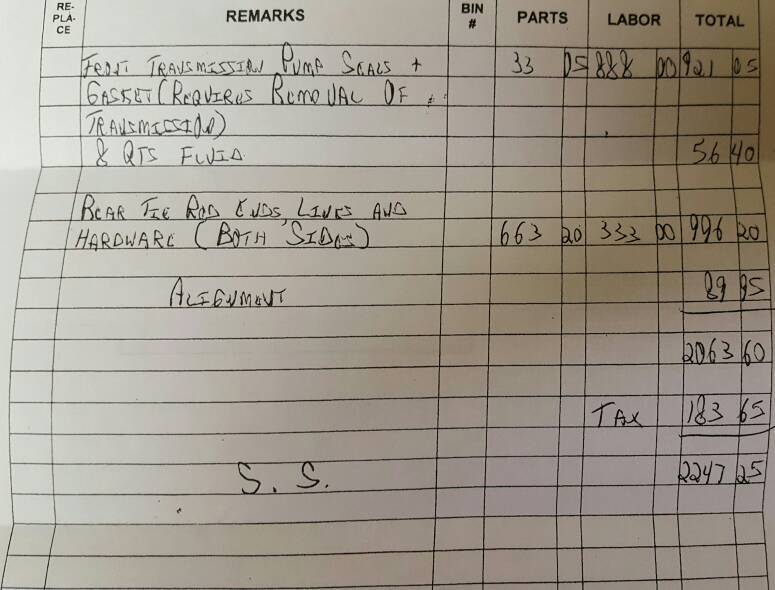 RE- PLA- CE REMARKS BIN # PARTS LABOR TOTAL
FRONT TRANSMISSION PUMP SEALS + 33 05 888 00 921 05
GASKET (REQUIRES REMOVAL OF
TRANSMISSION)
8 QTS FLUID 56 40
REAR TIE ROD ENDS, LINKS AND
HARDWARE (BOTH SIDES) 663 20 333 00 996 20
ALIGNMENT 89 95
2063 60
TAX 183 65
S. S. 2247 25